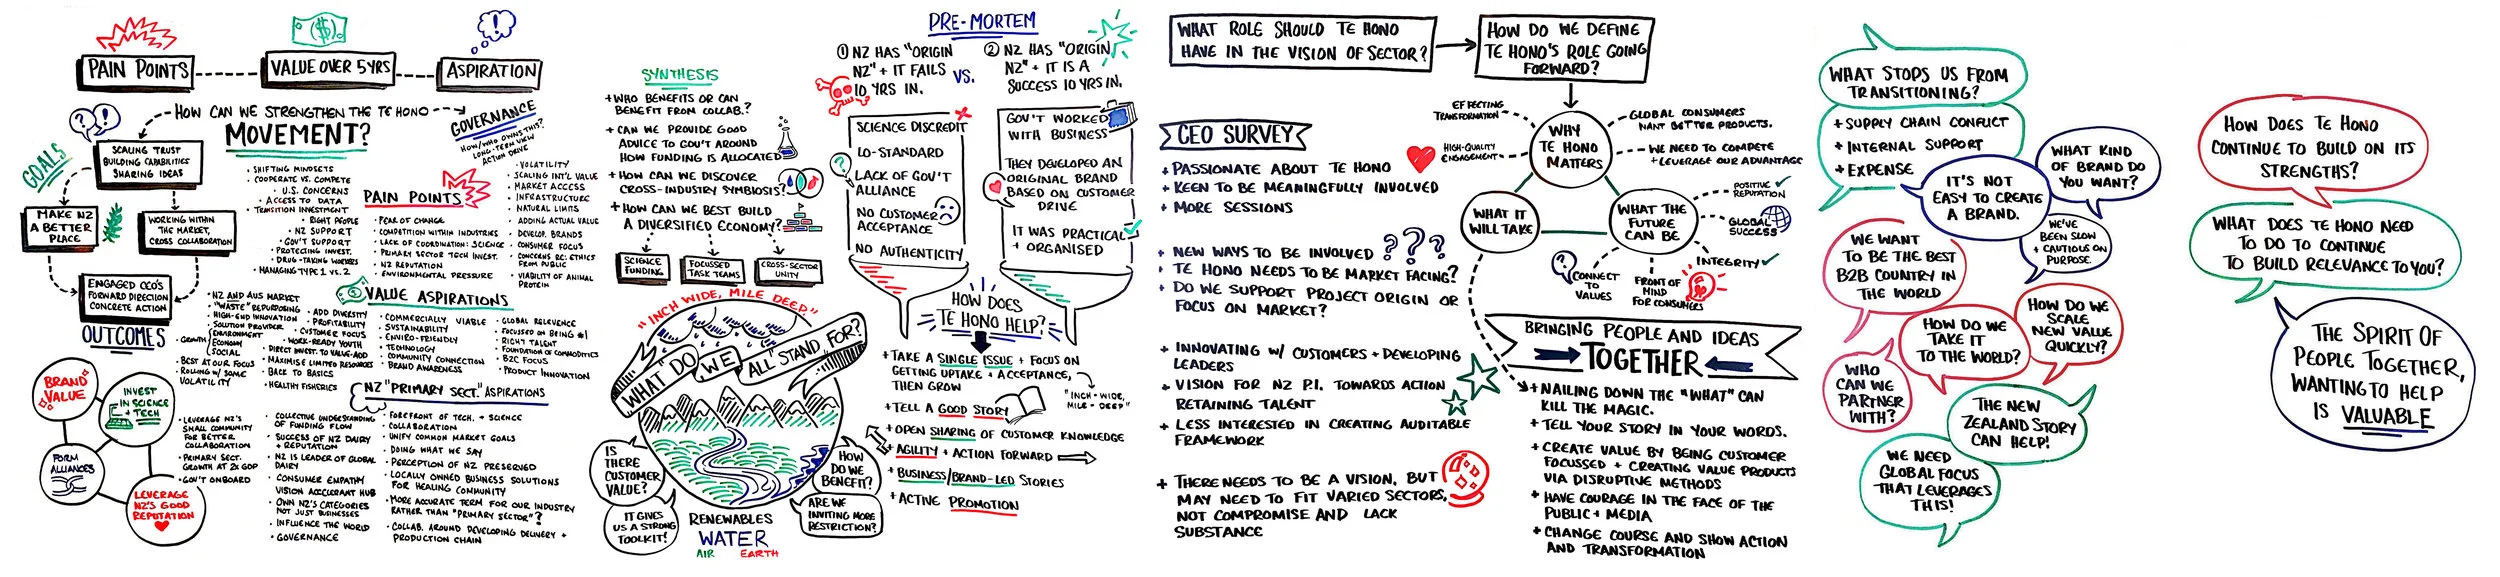 PAIN POINTS
VALUE OVER 5YRS
($)
ASPIRATION
HOW CAN WE STRENGTHEN THE TE HONO
MOVEMENT?
GOVERNANCE
HOW/WHO OWNS THIS?
LONG-TERM VIEW
ACTION DRIVE
GOALS
SCALING TRUST
BUILDING CAPABILITIES
SHARING IDEAS
MAKE NZ
A BETTER
PLACE
WORKING WITHIN
THE MARKET,
CROSS COLLABORATION
ENGAGED CEO'S
FORWARD DIRECTION
CONCRETE ACTION
OUTCOMES
PAIN POINTS
• SHIFTING MINDSETS
• COOPERATE VS. COMPETE
• U.S. CONCERNS
• ACCESS TO DATA
• TRANSITION INVESTMENT
• RIGHT PEOPLE
• NZ SUPPORT
• GOV'T SUPPORT
• PROTECTING INVEST.
• DRUG-TAKING WORKERS
• MANAGING TYPE 1 VS. 2
• FEAR OF CHANGE
• COMPETITION WITHIN INDUSTRIES
• LACK OF COORDINATION: SCIENCE
• PRIMARY SECTOR TECH INVEST.
• NZ REPUTATION
• ENVIRONMENTAL PRESSURE
• VOLATILITY
• SCALING INT'L VALUE
• MARKET ACCESS
• INFRASTRUCTURE
• NATURAL LIMITS
• ADDING ACTUAL VALUE
• DEVELOP. BRANDS
• CONSUMER FOCUS
• CONCERNS RE: ETHICS
FROM PUBLIC
• VIABILITY OF ANIMAL
PROTEIN
VALUE ASPIRATIONS
• NZ AND AUS MARKET
• "WASTE" REPURPOSING
• HIGH-END INNOVATION
• SOLUTION PROVIDER
• GROWTH
ENVIRONMENT
ECONOMY
SOCIAL
• BEST AT OUR FOCUS
• ROLLING W/ SOME
VOLATILITY
• ADD DIVERSITY
• PROFITABILITY
• CUSTOMER FOCUS
• WORK-READY YOUTH
• DIRECT INVEST. TO VALUE-ADD
• MAXIMISE LIMITED RESOURCES
• BACK TO BASICS
• HEALTHY FISHERIES
• COMMERCIALLY VIABLE
• SUSTAINABILITY
• ENVIRO-FRIENDLY
• TECHNOLOGY
• COMMUNITY CONNECTION
• BRAND AWARENESS
• GLOBAL RELEVENCE
• FOCUSSED ON BEING #1
• RIGHT TALENT
• FOUNDATION OF COMMODITIES
• B2C FOCUS
• PRODUCT INNOVATION
BRAND
VALUE
INVEST
IN SCIENCE
+ TECH
FORM
ALLIANCES
LEVERAGE
NZ'S GOOD
REPUTATION
NZ "PRIMARY SECT." ASPIRATIONS
• LEVERAGE NZ'S
SMALL COMMUNITY
FOR BETTER
COLLABORATION
• PRIMARY SECT.
GROWTH AT 2X GDP
• GOV'T ONBOARD
• COLLECTIVE UNDERSTANDING
OF FUNDING FLOW
• SUCCESS OF NZ DAIRY
+ REPUTATION
• NZ IS LEADER OF GLOBAL
DAIRY
• CONSUMER EMPATHY
VISION ACCLERANT HUB
• OWN NZ'S CATEGORIES
NOT JUST BUSINESSES
• INFLUENCE THE WORLD
• GOVERNANCE
• FOREFRONT OF TECH. + SCIENCE
• COLLABORATION
• UNIFY COMMON MARKET GOALS
• DOING WHAT WE SAY
• PERCEPTION OF NZ PRESERVED
• LOCALLY OWNED BUSINESS SOLUTIONS
FOR HEALING COMMUNITY
• MORE ACCURATE TERM FOR OUR INDUSTRY
RATHER THAN "PRIMARY SECTOR"?
• COLLAB. AROUND DEVELOPING DELIVERY +
PRODUCTION CHAIN
SYNTHESIS
+ WHO BENEFITS OR CAN
BENEFIT FROM COLLAB.?
+ CAN WE PROVIDE GOOD
ADVICE TO GOV'T AROUND
HOW FUNDING IS ALLOCATED
+ HOW CAN WE DISCOVER
CROSS-INDUSTRY SYMBIOSIS?
+ HOW CAN WE BEST BUILD
A DIVERSIFIED ECONOMY?
SCIENCE
FUNDING
FOCUSSED
TASK TEAMS
CROSS-SECTOR
UNITY
"INCH WIDE, MILE DEEP"
WHAT DO WE ALL STAND FOR?
IS
THERE
CUSTOMER
VALUE?
IT GIVES
US A STRONG
TOOLKIT!
HOW
DO WE
BENEFIT?
ARE WE
INVITING MORE
RESTRICTION?
RENEWABLES
WATER
AIR EARTH
PRE-MORTEM
① NZ HAS "ORIGIN
NZ" + IT FAILS
10 YRS IN.
VS.
② NZ HAS "ORIGIN
NZ" + IT IS A
SUCCESS 10 YRS IN.
SCIENCE DISCREDIT
LO-STANDARD
LACK OF GOV'T
ALLIANCE
NO CUSTOMER
ACCEPTANCE
NO AUTHENTICITY
GOV'T WORKED
WITH BUSINESS
THEY DEVELOPED AN
ORIGINAL BRAND
BASED ON CUSTOMER
DRIVE
IT WAS PRACTICAL
+ ORGANISED
HOW DOES
TE HONO HELP?
+ TAKE A SINGLE ISSUE + FOCUS ON
GETTING UPTAKE + ACCEPTANCE,
THEN GROW
"INCH-WIDE,
MILE-DEEP"
+ TELL A GOOD STORY
+ OPEN SHARING OF CUSTOMER KNOWLEDGE
+ AGILITY + ACTION FORWARD
+ BUSINESS/BRAND-LED STORIES
+ ACTIVE PROMOTION
WHAT ROLE SHOULD TE HONO
HAVE IN THE VISION OF SECTOR?
HOW DO WE DEFINE
TE HONO'S ROLE GOING
FORWARD?
CEO SURVEY
+ PASSIONATE ABOUT TE HONO
+ KEEN TO BE MEANINGFULLY INVOLVED
+ MORE SESSIONS
+ NEW WAYS TO BE INVOLVED ???
+ TE HONO NEEDS TO BE MARKET FACING?
+ DO WE SUPPORT PROJECT ORIGIN OR
FOCUS ON MARKET?
+ INNOVATING W/ CUSTOMERS + DEVELOPING
LEADERS
+ VISION FOR NZ P.I. TOWARDS ACTION
RETAINING TALENT
+ LESS INTERESTED IN CREATING AUDITABLE
FRAMEWORK
+ THERE NEEDS TO BE A VISION, BUT
MAY NEED TO FIT VARIED SECTORS,
NOT COMPROMISE AND LACK
SUBSTANCE
WHY
TE HONO
MATTERS
EFFECTING
TRANSFORMATION
HIGH-QUALITY
ENGAGEMENT
GLOBAL CONSUMERS
WANT BETTER PRODUCTS.
WE NEED TO COMPETE
+ LEVERAGE OUR ADVANTAGE
WHAT IT
WILL TAKE
WHAT THE
FUTURE
CAN BE
POSITIVE
REPUTATION
GLOBAL
SUCCESS
INTEGRITY
CONNECT
TO
VALUES
FRONT OF
MIND
FOR CONSUMERS
BRINGING PEOPLE AND IDEAS
TOGETHER
+ NAILING DOWN THE "WHAT" CAN
KILL THE MAGIC.
+ TELL YOUR STORY IN YOUR WORDS.
+ CREATE VALUE BY BEING CUSTOMER
FOCUSSED + CREATING VALUE PRODUCTS
VIA DISRUPTIVE METHODS
+ HAVE COURAGE IN THE FACE OF THE
PUBLIC + MEDIA
+ CHANGE COURSE AND SHOW ACTION
AND TRANSFORMATION
WHAT STOPS US FROM
TRANSITIONING?
+ SUPPLY CHAIN CONFLICT
+ INTERNAL SUPPORT
+ EXPENSE
IT'S NOT
EASY TO CREATE
A BRAND.
WHAT KIND
OF BRAND DO
YOU WANT?
WE'VE
BEEN SLOW
+ CAUTIOUS ON
PURPOSE.
WE WANT
TO BE THE BEST
B2B COUNTRY IN
THE WORLD
HOW DO WE
TAKE IT
TO THE WORLD?
HOW DO WE
SCALE
NEW VALUE
QUICKLY?
WHO
CAN WE
PARTNER
WITH?
THE NEW
ZEALAND STORY
CAN HELP!
WE NEED
GLOBAL FOCUS
THAT LEVERAGES
THIS!
HOW DOES TE HONO
CONTINUE TO BUILD ON ITS
STRENGTHS?
WHAT DOES TE HONO NEED
TO DO TO CONTINUE
TO BUILD RELEVANCE TO YOU?
THE SPIRIT OF
PEOPLE TOGETHER,
WANTING TO HELP
IS VALUABLE